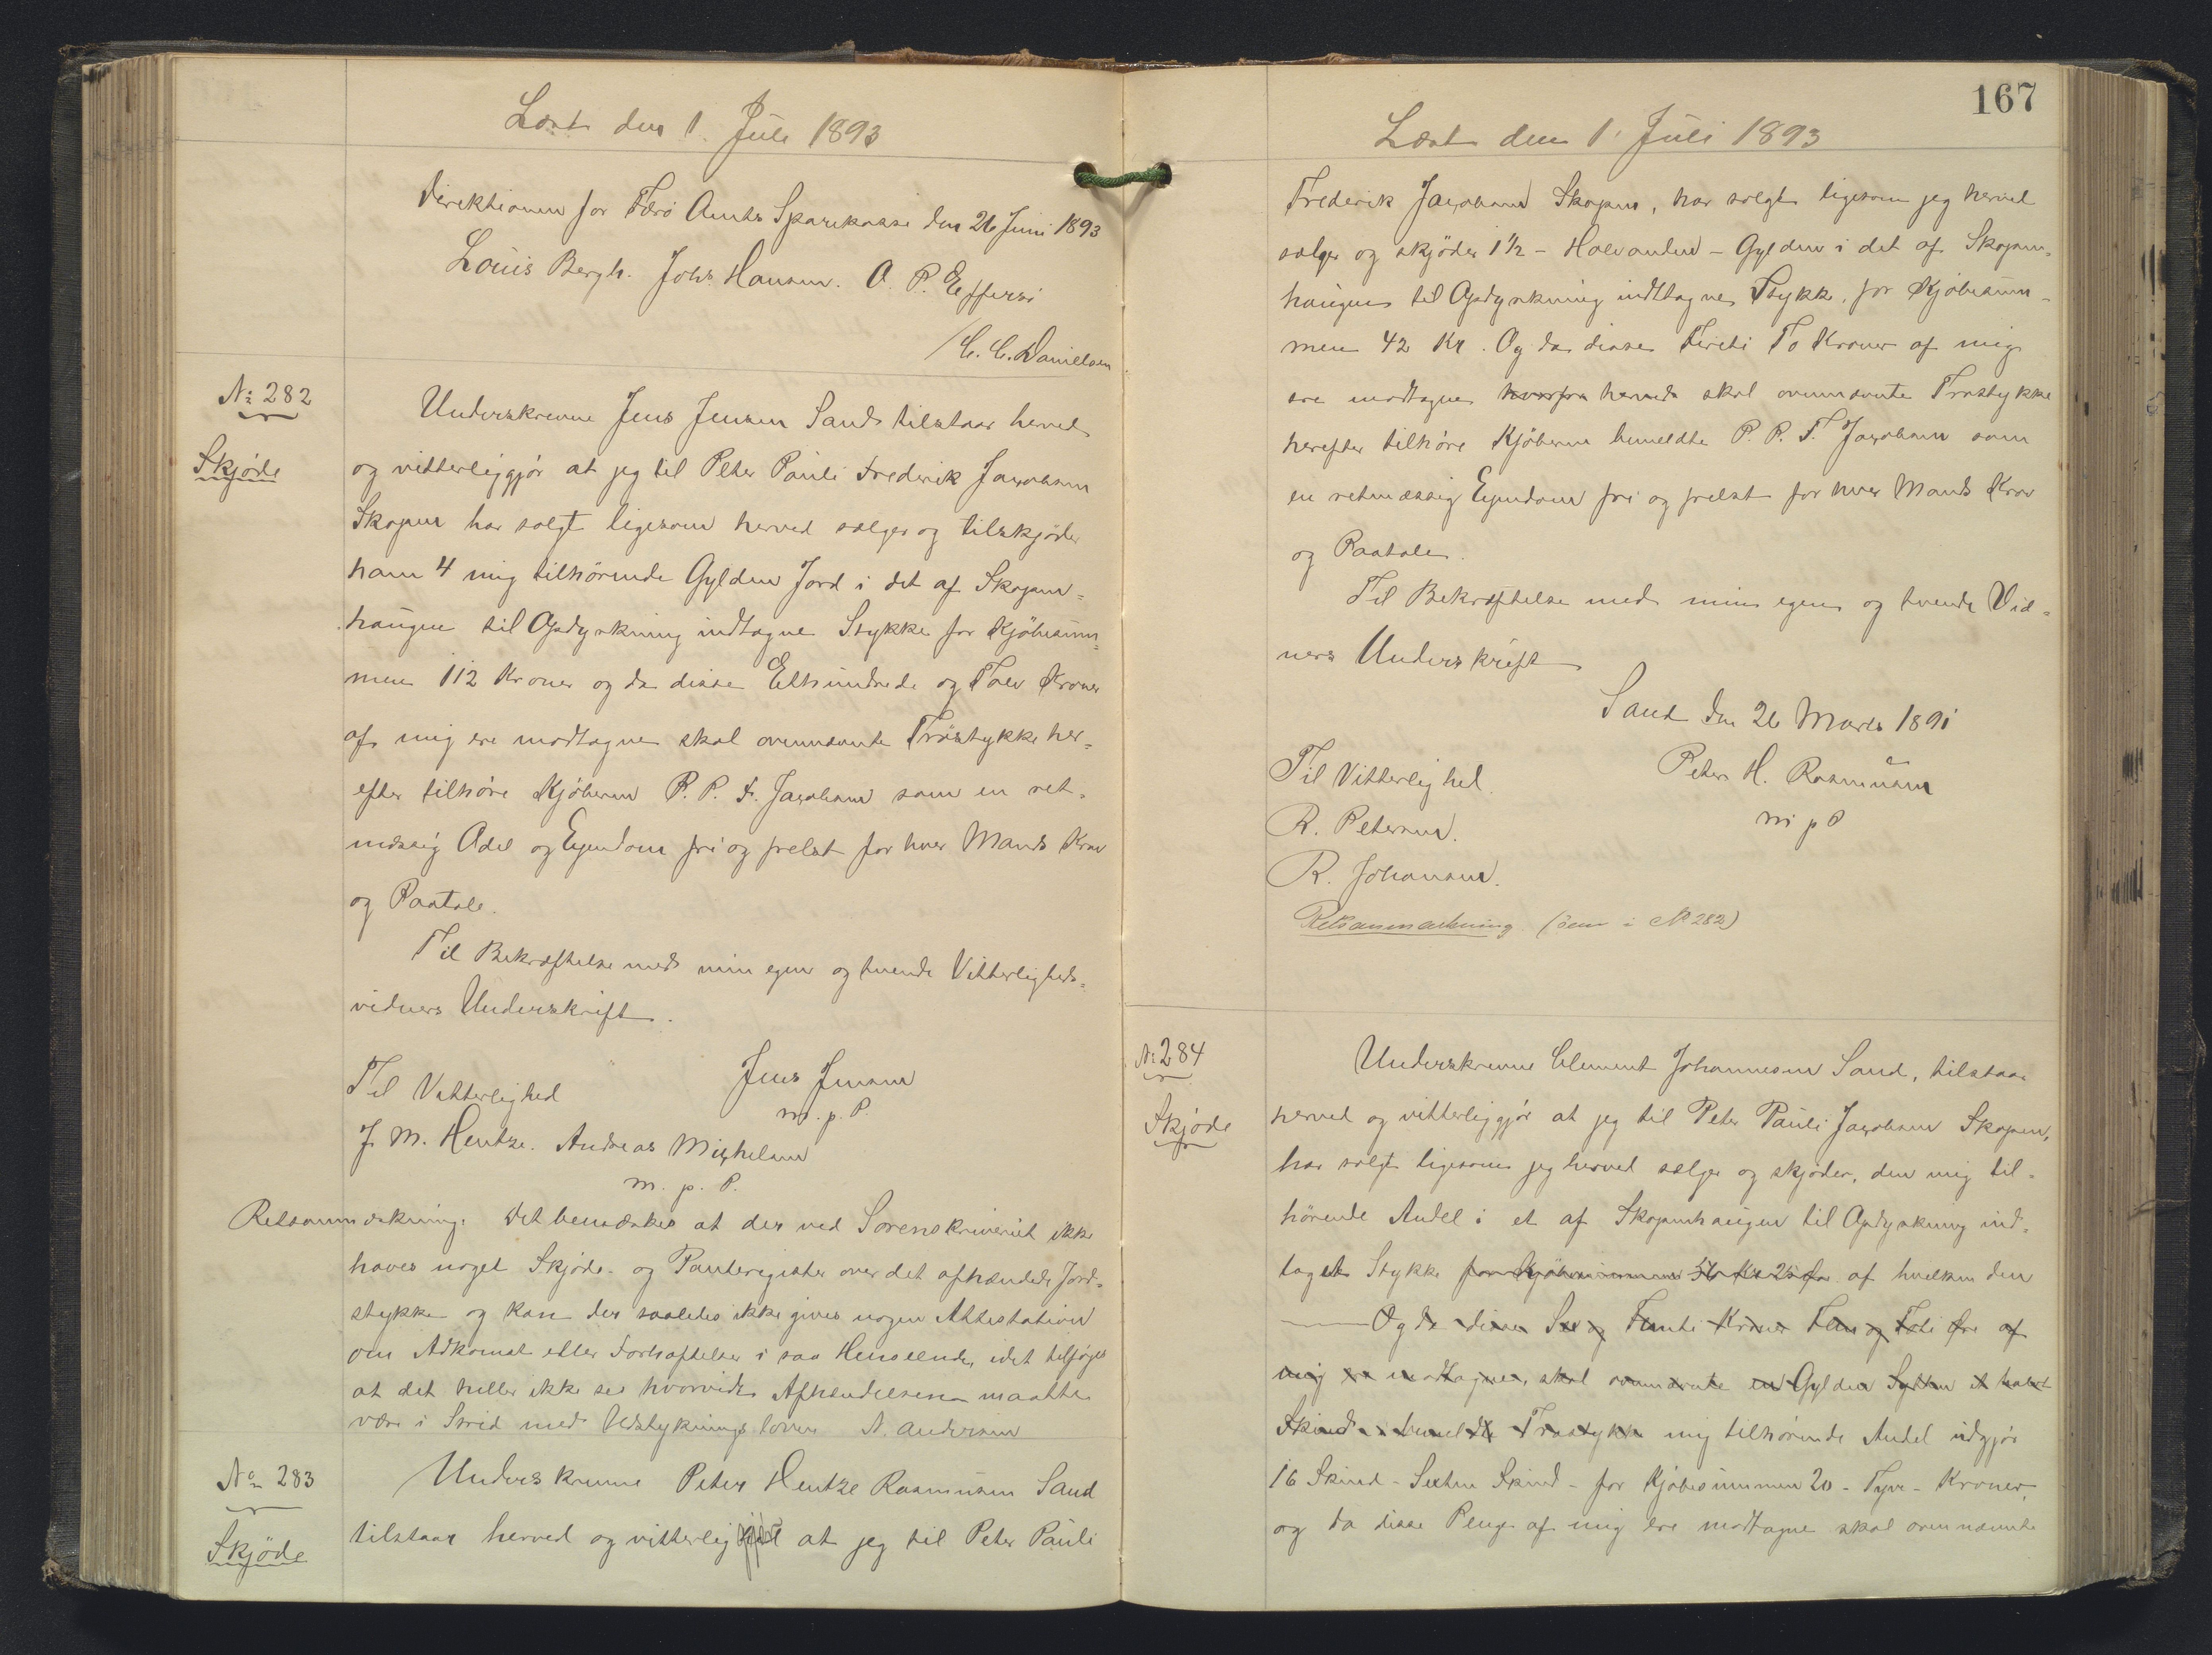 Læst den 1. Juli 1893
Direktionen for Færø Amts Sparekasse den 26 Juni 1893
Louis Bergh. Johs Hansen. O. P. Effersö
/C. C. Danielsen
No 282
Skjöde
Underskrevne Jens Jensen Sand tilstaar herved
og vitterliggjör at jeg til Peter Pauli Frederik Jacobsen
Skopen har solgt ligesom herved sælger og tilskjöder
ham 4 mig tilhörende Gylden Jord i det af Skopen-
haugen til Opdyrkning indtagne Stykke for Kjöbesum-
men 112 Kroner og da disse Ethundrede og Tolv Kroner
af mig ere modtagne skal ovennævnte Tröstykke her-
efter tilhöre Kjöberen P. P. F. Jacobsen som en ret-
mæssig Odel og Ejendom fri og frelst for hver Mands Krav
og Paatale.
Til Bekræftelse med min egen og tvende Vitterligheds-
vidners Underskrift.
Jens Jensen
Til Vitterlighed
m. p. P.
J. M. Hentze. Andreas Michelsen
m. p. P.
Retsanmærkning: Det bemærkes at der ved Sorenskriveriet ikke
haves noget Skjöde- og Panteregister over det afhændede Jord-
stykke og kan der saaledes ikke gives nogen Attestation
om Adkomst eller Forhæftelser i saa Henseende, idet tilföjes
at det heller ikke sees hvorvidt Afhændelsen maatte
være i Strid med Udstykningsloven N. Andersen
No 283
Skjöde
Underskrevne Peter Hentze Rasmussen Sand
tilstaar herved og vitterlig at jeg til Peter Pauli
167
Læst den 1. Juli 1893
Frederik Jacobsen Skopen, har solgt ligesom jeg herved
sælger og skjöder 1½ - Halvanden - Gylden i det af Skopen-
haugen til Opdyrkning indtagne Stykke, for Kjöbesum-
men 42 Kr. Og da disse Firti To Kroner af mig
ere modtagne hvorfra herved skal ovennævnte Trøstykke
herefter tilhöre Kjöberen bemeldte P. P. F. Jacobsen som
en retmæssig Ejendom fri og frelst for hver Mands Krav
og Paatale.
Til Bekræftelse med min egen og tvende Vid-
ners Underskrift
Sand den 26 Marts 1891
Til Vitterlighed.
Peter H. Rasmussen
R. Petersen.
m p P
R. Johansen.
Retsanmærkning (som i No 282)
No 284
Skjöde
Underskrevne Clement Johannesen Sand, tilstaar
herved og vitterliggjör at jeg til Peter Pauli Jacobsen Skopen,
har solgt ligesom jeg herved sælger og skjöder, den mig til-
hörende Andel i et af Skopenhaugen til Opdyrkning ind-
taget Stykke for Kjöbesummen 56 Kr 25 Øre af hvilken den
Og da disse Sex og Femti Kroner Fem og Tive Öre af
mig ere modtagne, skal ovennævnte en Gylden Sytten et halvt
Skind i bemeldte Trøstykke mig tilhörende Andel udgjör
16 Skind - Sexten Skind - for Kjöbesummen 20 - Tyve - Kroner,
og da disse Penge af mig ere modtagne skal ovennævnte